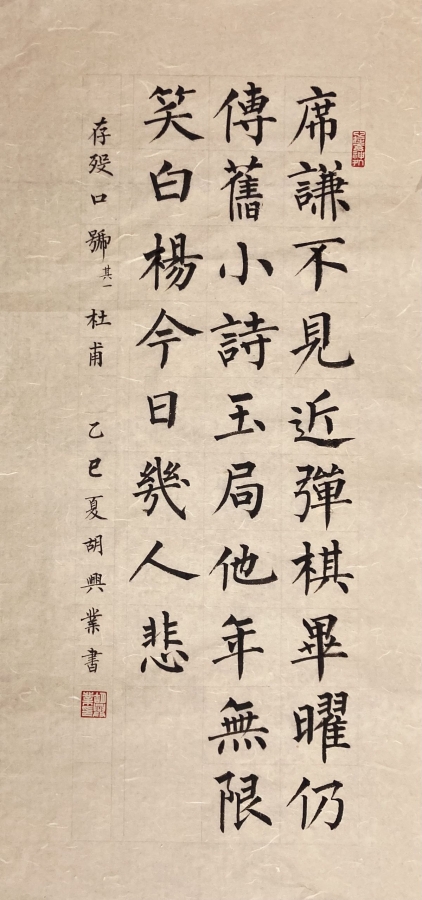 席謙不見近彈棋畢曜仍
傳舊小詩玉局他年無限
笑白楊今日幾人悲
存殁口號其一 杜甫 乙巳夏胡興業書